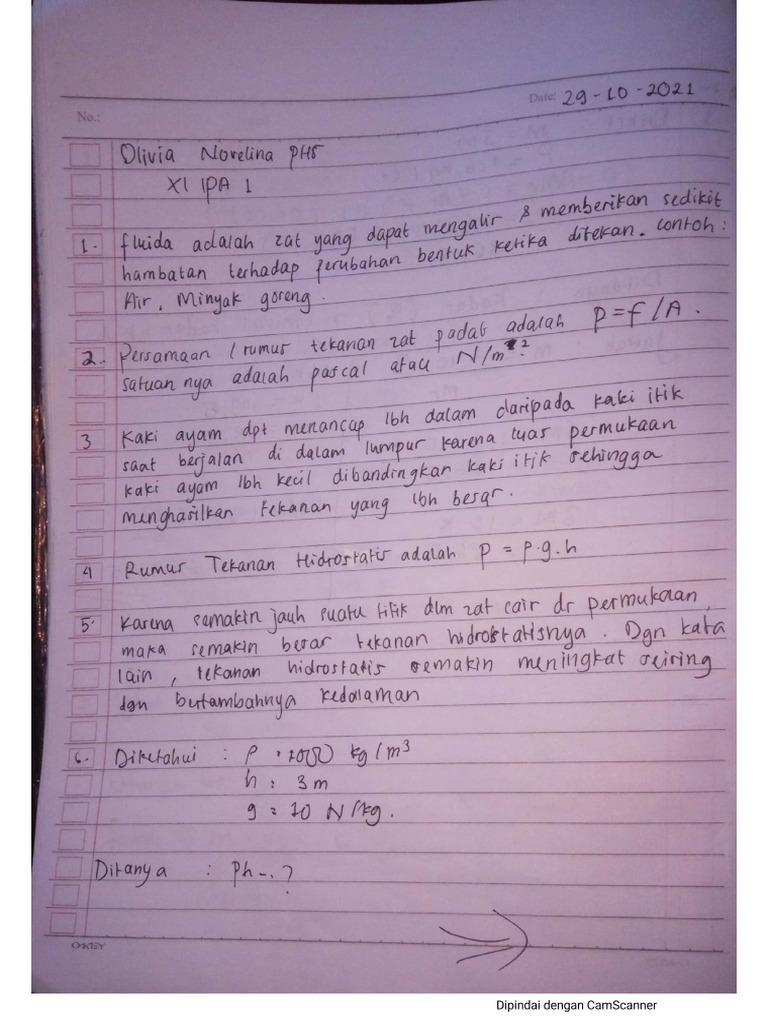 Date: 29-10-2021
No.:
Olivia Novelina PHS
XI IPA 1
1. fluida adalah zat yang dapat mengalir & memberikan sedikit
hambatan terhadap perubahan bentuk ketika ditekan. contoh:
Air, Minyak goreng.
2. Persamaan / rumus tekanan zat padat adalah P=f/A.
satuan nya adalah pascal atau N/m².
3 Kaki ayam dpt menancap lbh dalam daripada kaki itik
saat berjalan di dalam lumpur karena luas permukaan
kaki ayam lbh kecil dibandingkan kaki itik sehingga
menghasilkan tekanan yang lbh besar.
4 Rumus Tekanan Hidrostatis adalah P = ρ.g.h
5. Karena semakin jauh suatu titik dlm zat cair dr permukaan,
maka semakin besar tekanan hidrostatisnya. Dgn kata
lain, tekanan hidrostatis semakin meningkat seiring
dgn bertambahnya kedalaman
6. Diketahui : ρ = 1000 kg/m³
h = 3 m
g = 10 N/kg.
Ditanya : Ph-.?
OKEY
Dipindai dengan CamScanner